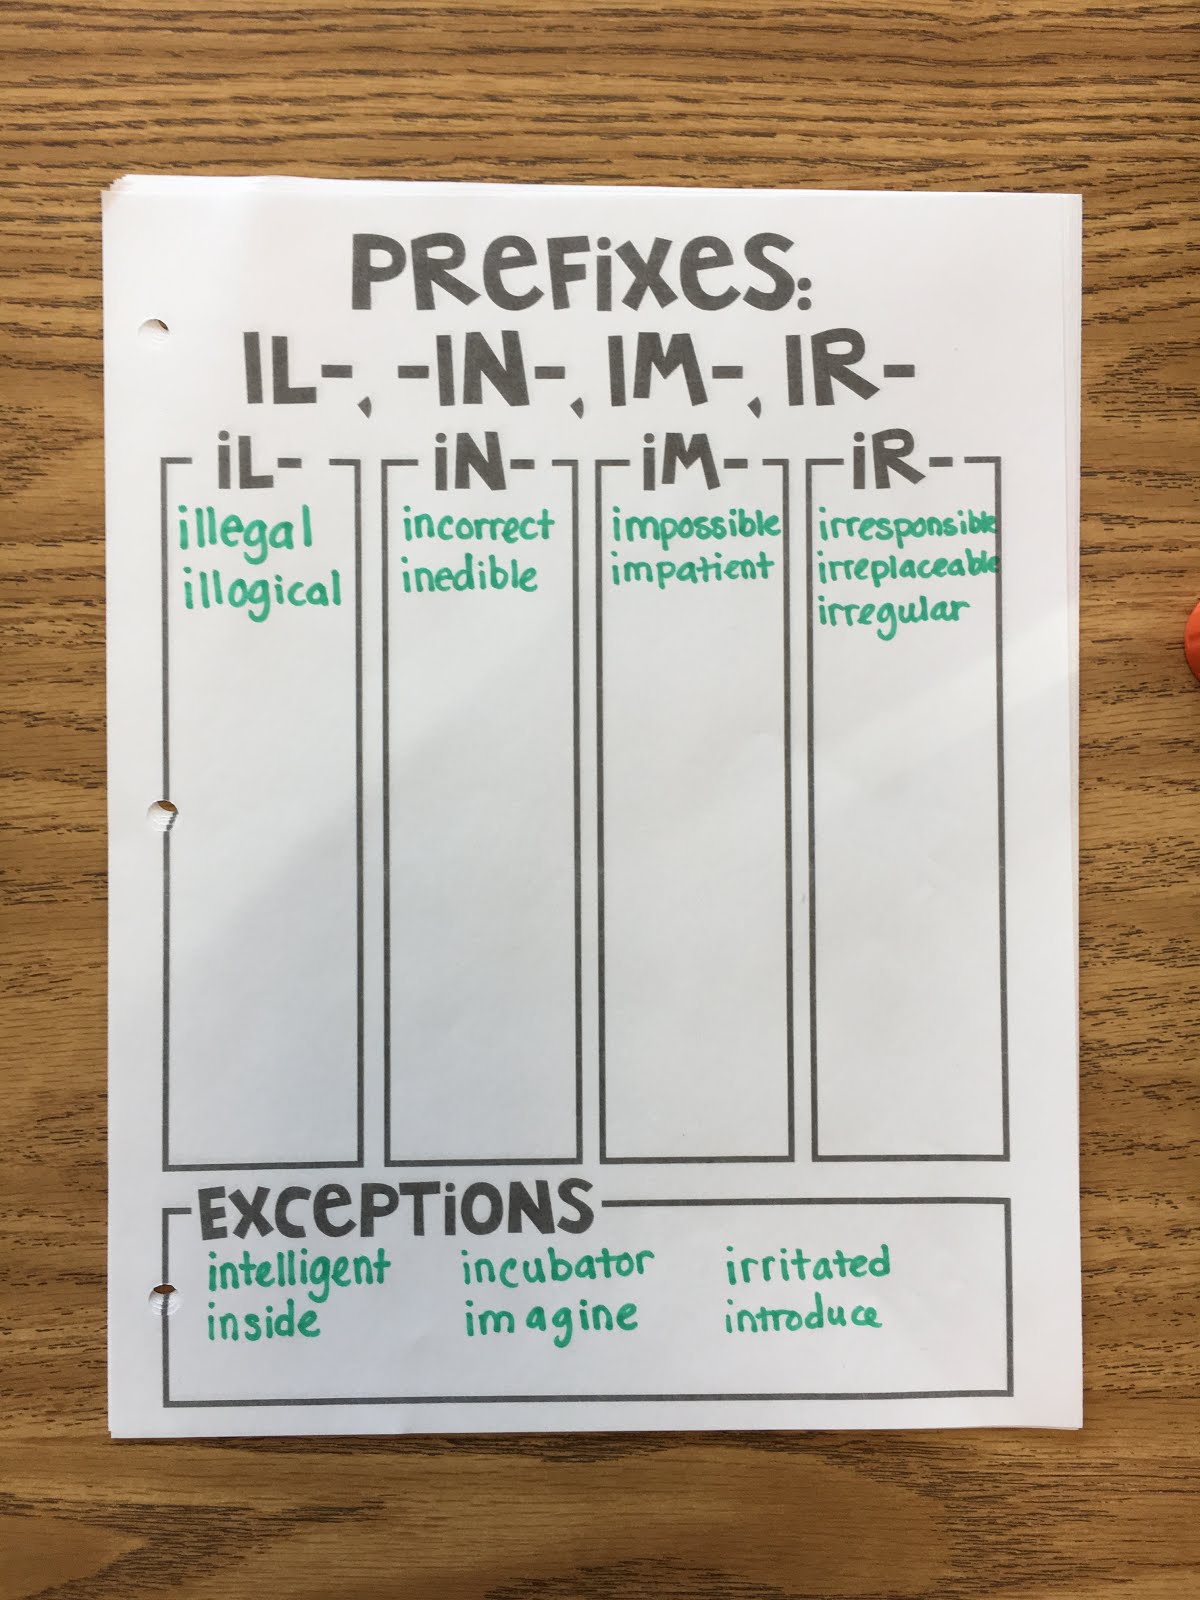 PReFiXeS:
IL-, -IN-, IM-, IR-
iL-
illegal
illogical
iN-
incorrect
inedible
iM-
impossible
impatient
iR-
irresponsible
irreplaceable
irregular
EXCePTiONS
intelligent incubator irritated
inside imagine introduce